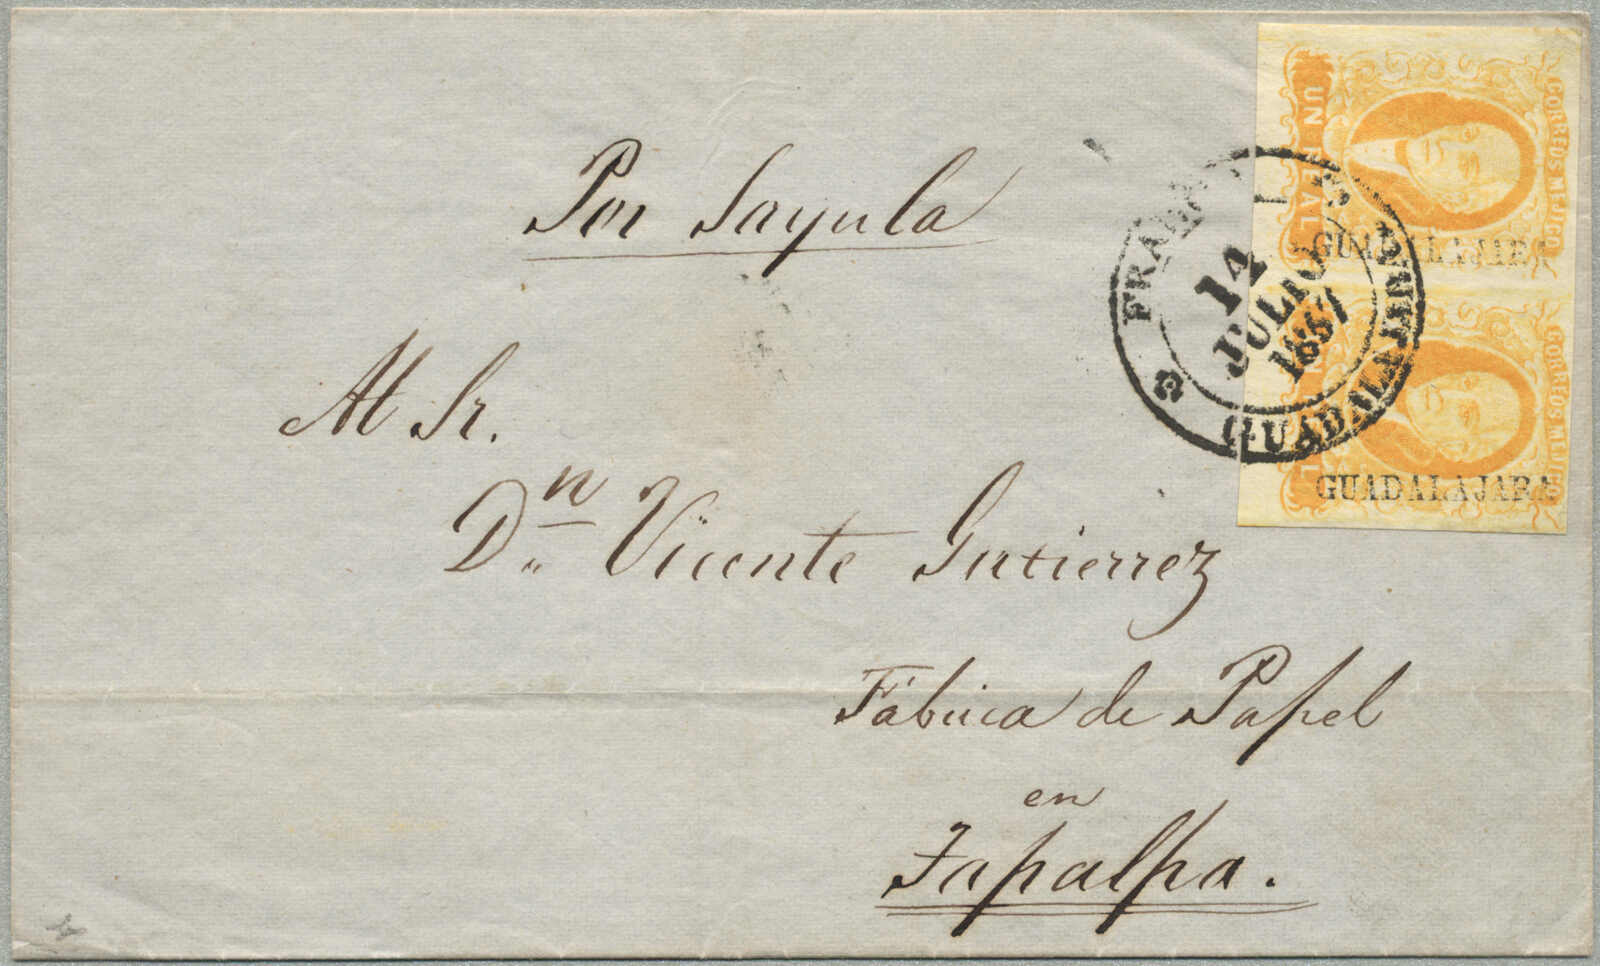 Por Sayula
Al Sr.
Dn Vicente Gutierrez
Fábrica de Papel
en
Tapalpa.
UN REAL
CORREOS MEJICO
GUADALAJARA
CORREOS MEJICO
GUADALAJARA
14
JULIO
1857
GUADALAJARA